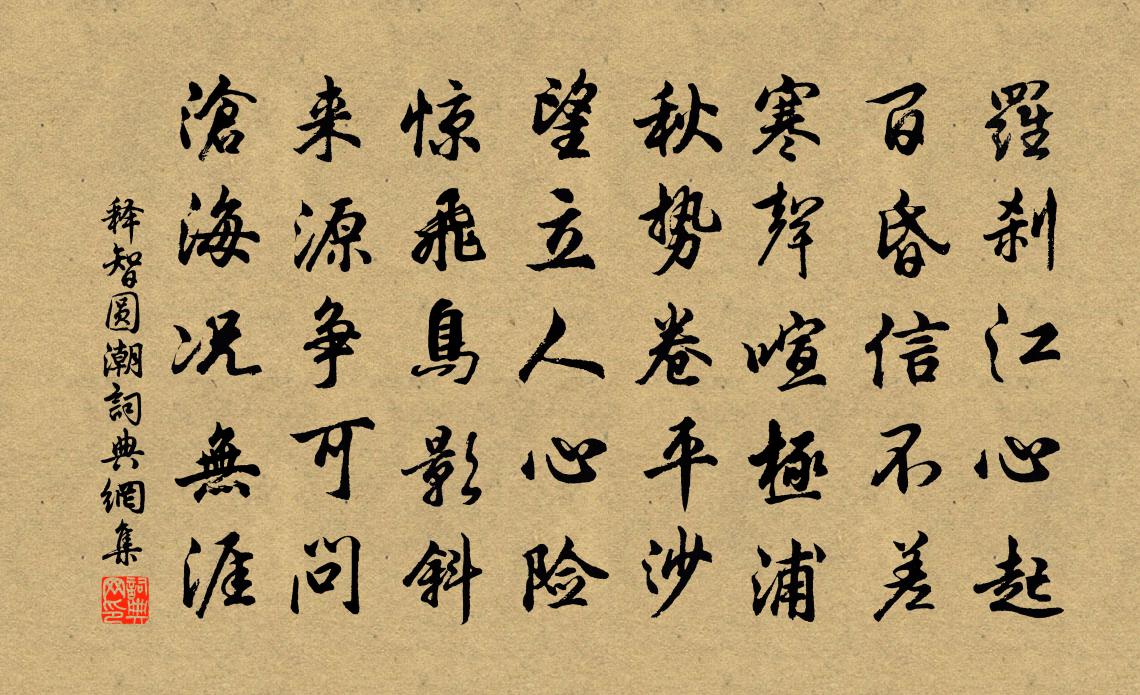 羅刹江心起
百昏信不差
寒聲喧極浦
秋势卷平沙
望立人心险
惊飛鳥影斜
来源争可問
滄海况無涯
释智圆潮詞典網集
詞典网印